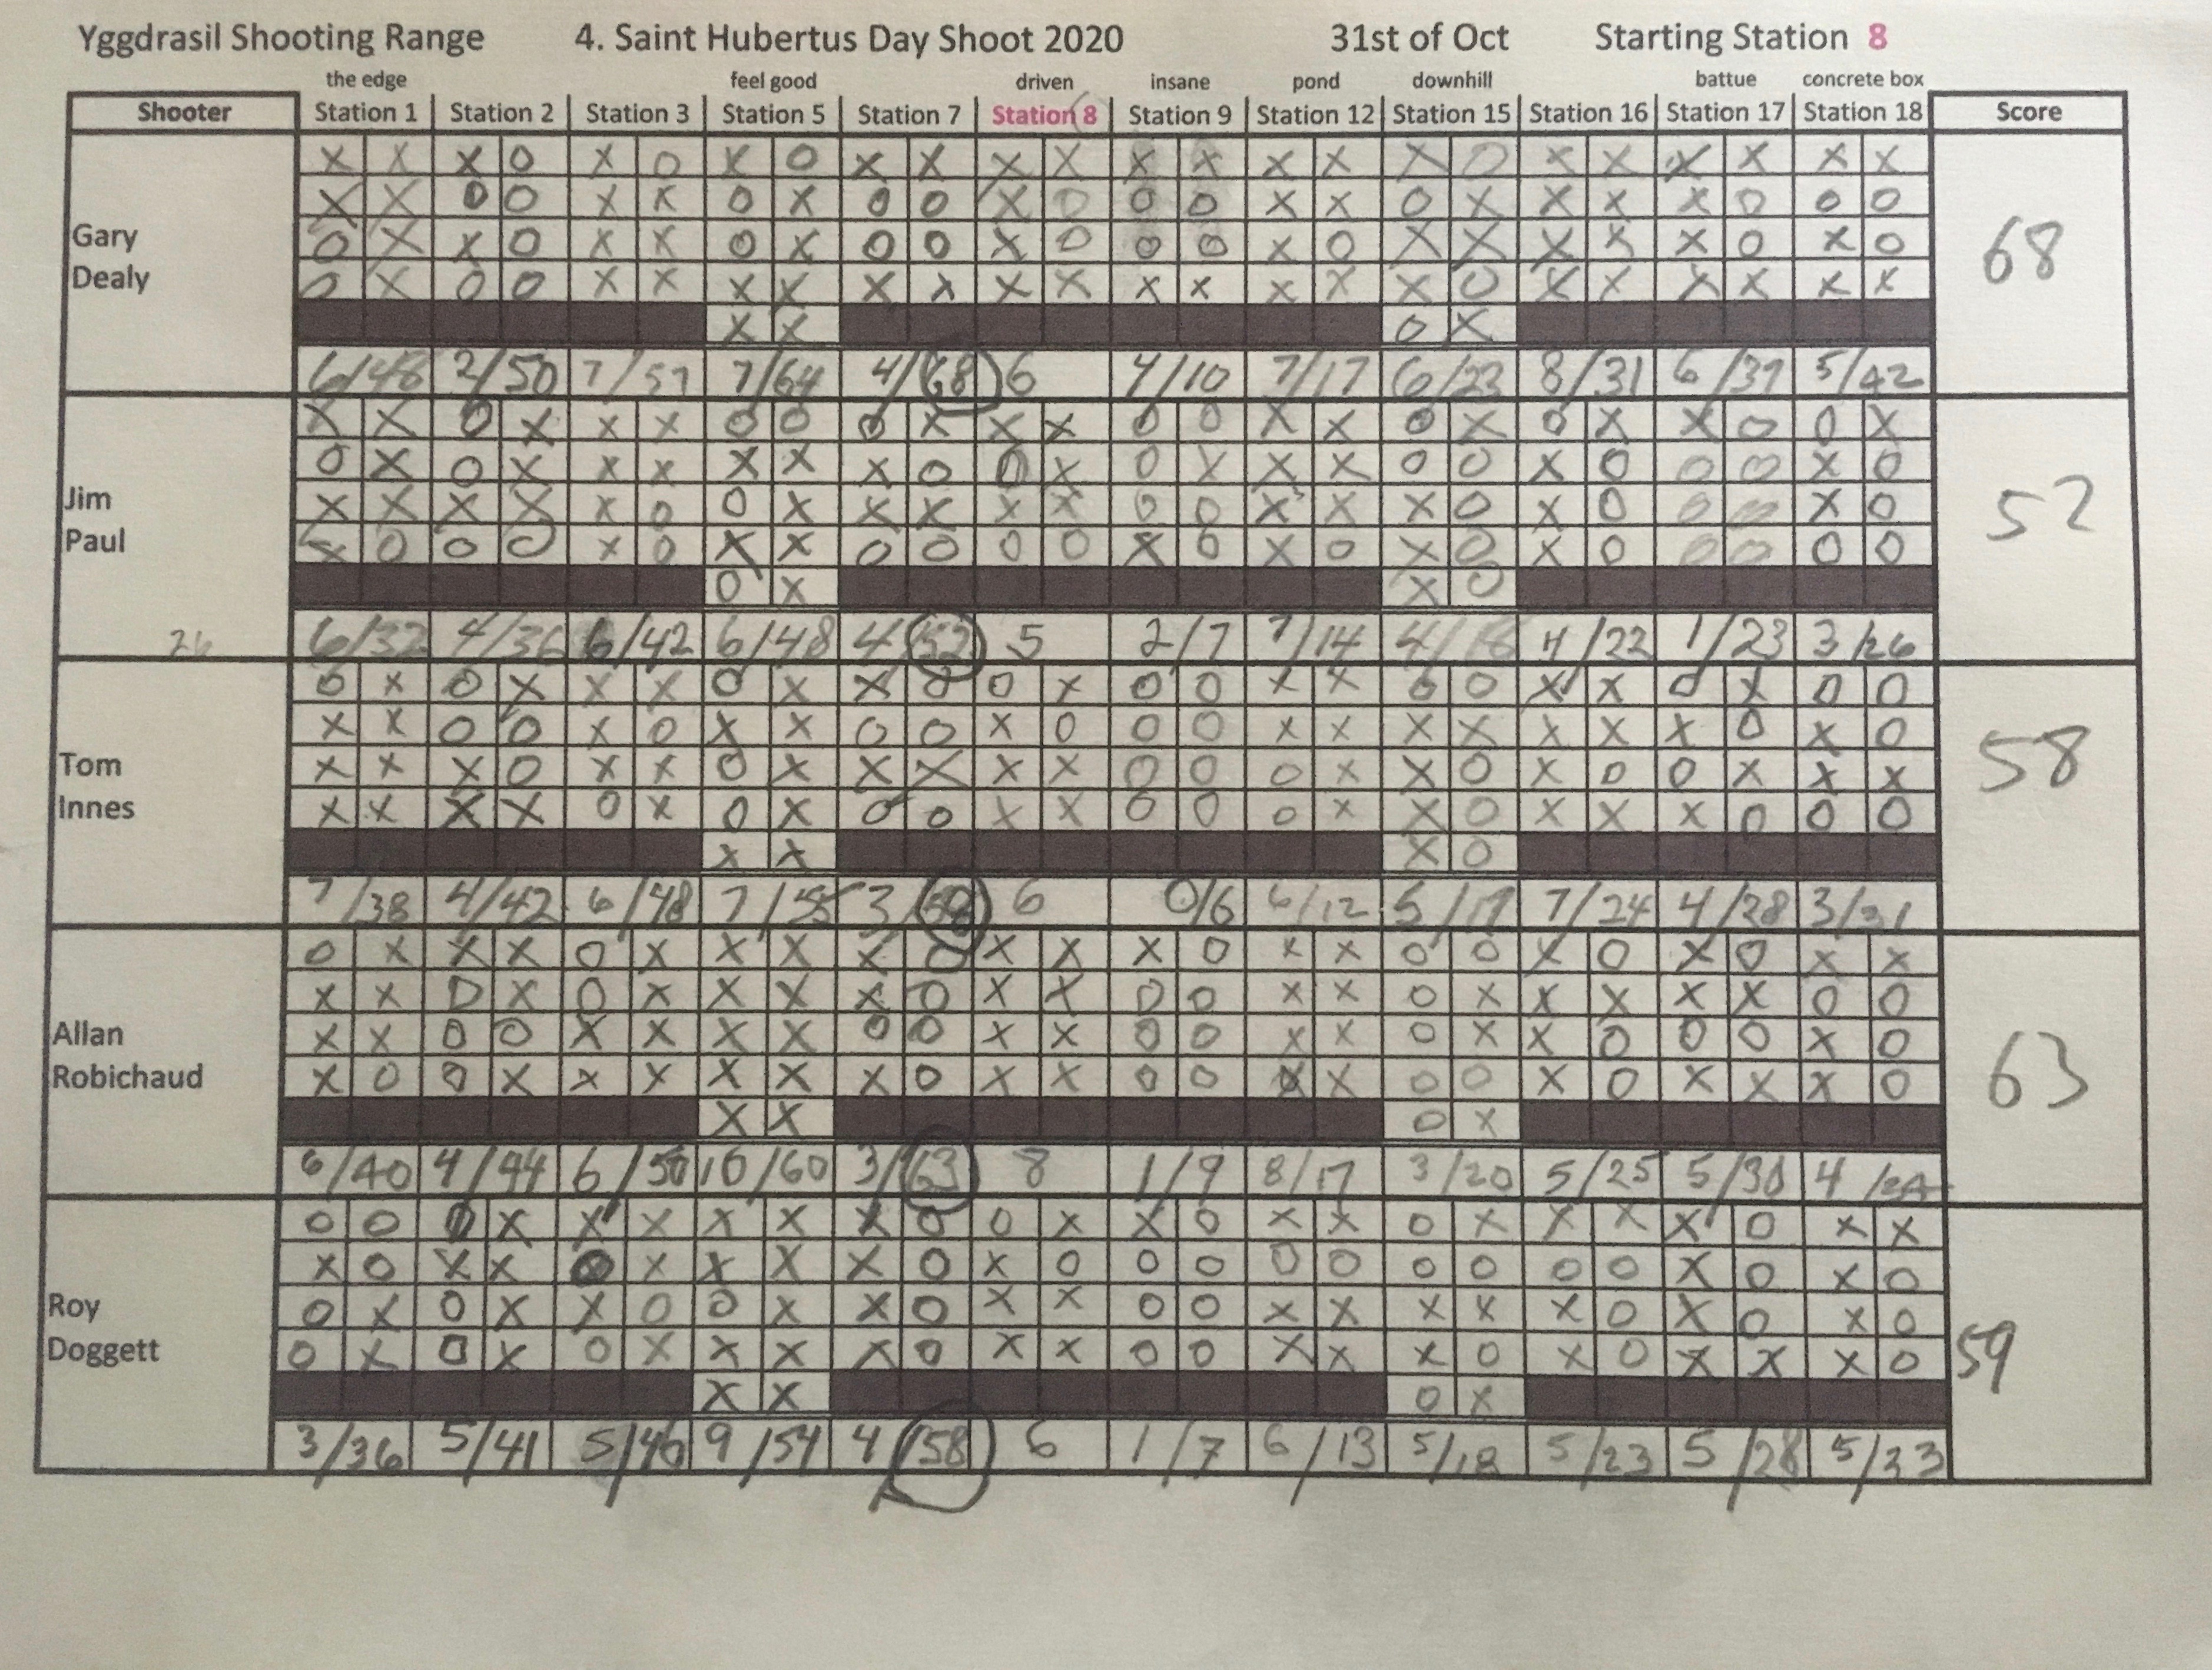 Yggdrasil Shooting Range 4. Saint Hubertus Day Shoot 2020 31st of Oct Starting Station 8
the edge feel good driven insane pond downhill battue concrete box
Shooter Station 1 Station 2 Station 3 Station 5 Station 7 Station 8 Station 9 Station 12 Station 15 Station 16 Station 17 Station 18 Score
X X X O X O X O X X X X X X X X X O X X X X X X
X X O O X X O X O O X O O O X X O X X X X O O O
O X X O X X O X O O X O O O X O X X X X X O X O
O X O O X X X X X X X X X X X X X O X X X X X X
Gary
Dealy
68
X X O X
6/48 2/50 7/57 7/64 4/68 6 4/10 7/17 6/23 8/31 6/37 5/42
X X O X X X O O O X X X O O X X O X O X X O O X
O X O X X X X X X O O X O X X X O O X O O O X O
X X X X X O O X X X X X O O X X X O X O O O X O
X O O O X O X X O O O O X O X O X O X O O O O O
Jim
Paul
52
O X X O
26 6/32 4/36 6/42 6/48 4/52 5 2/7 7/14 4/18 4/22 1/23 3/26
O X O X X X O X X O O X O O X X O O X X O X O O
X X O O X O X X O O X O O O X X X X X X X O X O
X X X O X X O X X X X X O O O X X O X O O X X X
X X X X O X O X O O X X O O O X X O X X X O O O
Tom
Innes
58
X X X O
7/38 4/42 6/48 7/55 3/58 6 0/6 6/12 5/17 7/24 4/28 3/31
O X X X O X X X X O X X X O X X O O X O X O X X
X X O X O X X X X O X X O O X X O X X X X X O O
X X O O X X X X O O X X O O X X O X X O O O X O
X O O X X X X X X O X X O O X X O O X O X X X O
Allan
Robichaud
63
X X O X
6/40 4/44 6/50 10/60 3/63 8 1/9 8/17 3/20 5/25 5/30 4
O O O X X X X X X O O X X O X X O X X X X O X X
X O X X O X X X X O X O O O O O O O O O X O X O
O X O X X O O X X O X X O O X X X X X O X O X O
O X O X O X X X X O X X O O X X X O X O X X X O
Roy
Doggett
59
X X O X
3/36 5/41 5/46 9/54 4/58 6 1/7 6/13 5/18 5/23 5/28 5/33